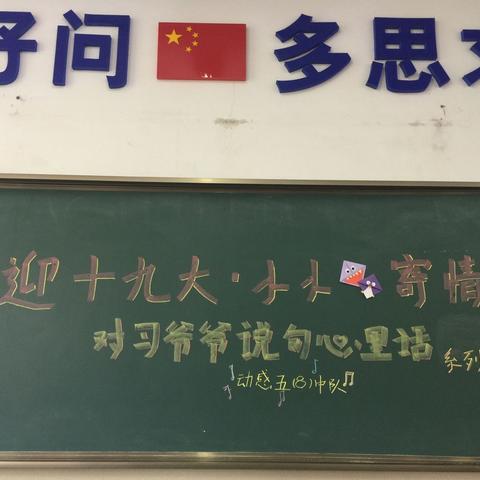 好问 多思
迎十九大·小小 寄情
对习爷爷说句心里话
系列
动感五(8)中队